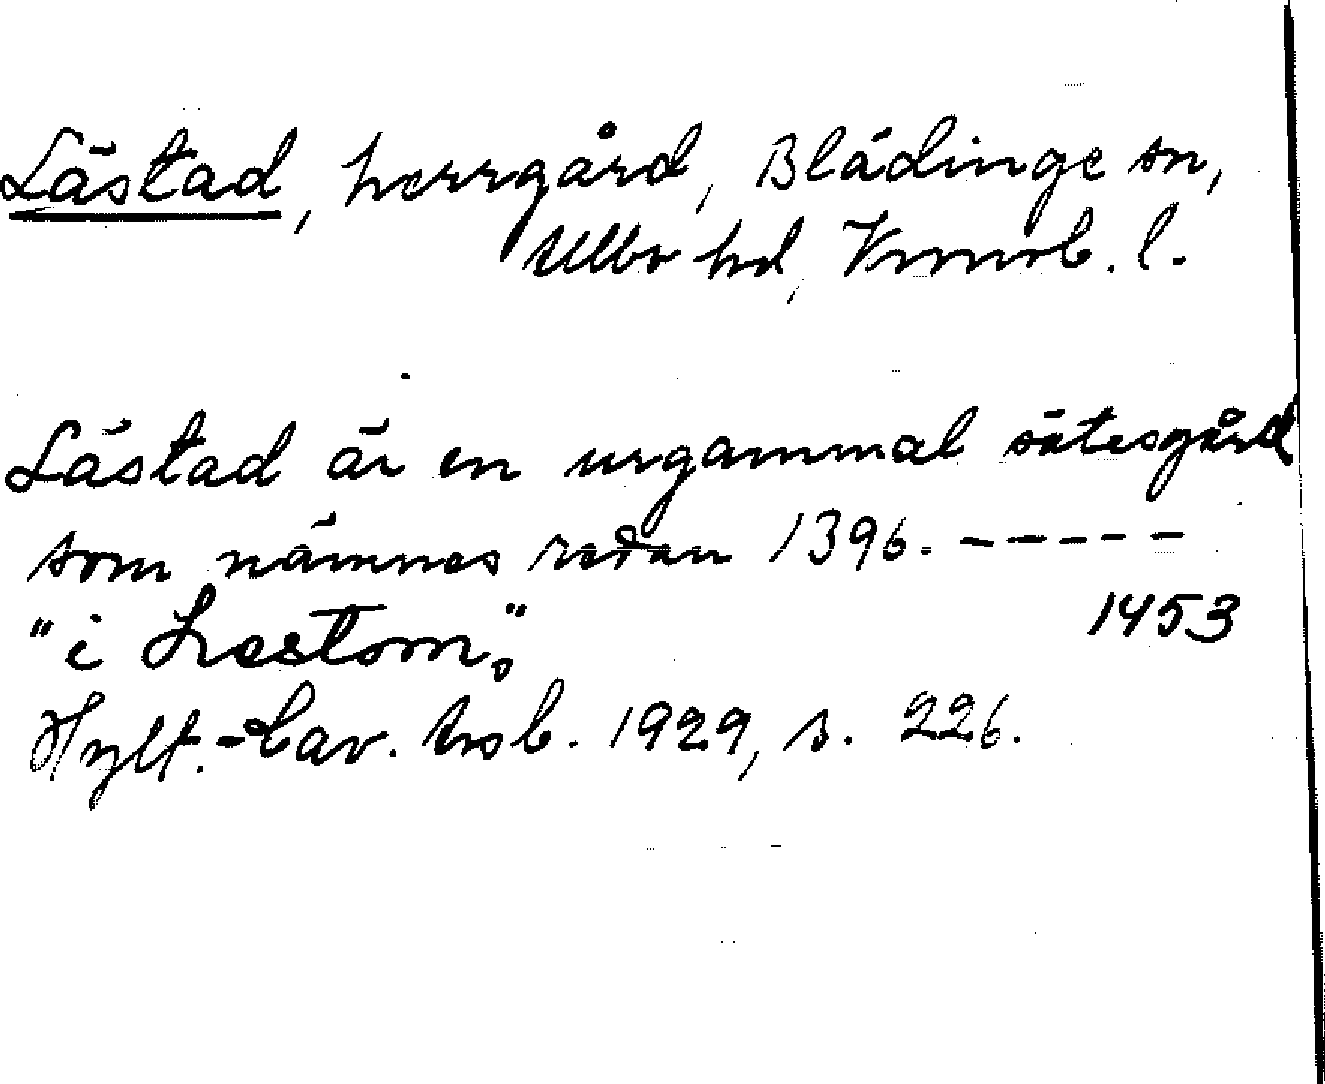 Lästad, herrgård, Blädinge sn,
Allbo hd, Kronob. l.
Lästad är en urgammal sätesgård
som nämnes redan 1396. ------
"i Lrestom". 1453
Hylt.-Cav. hsb. 1929, s. 226.